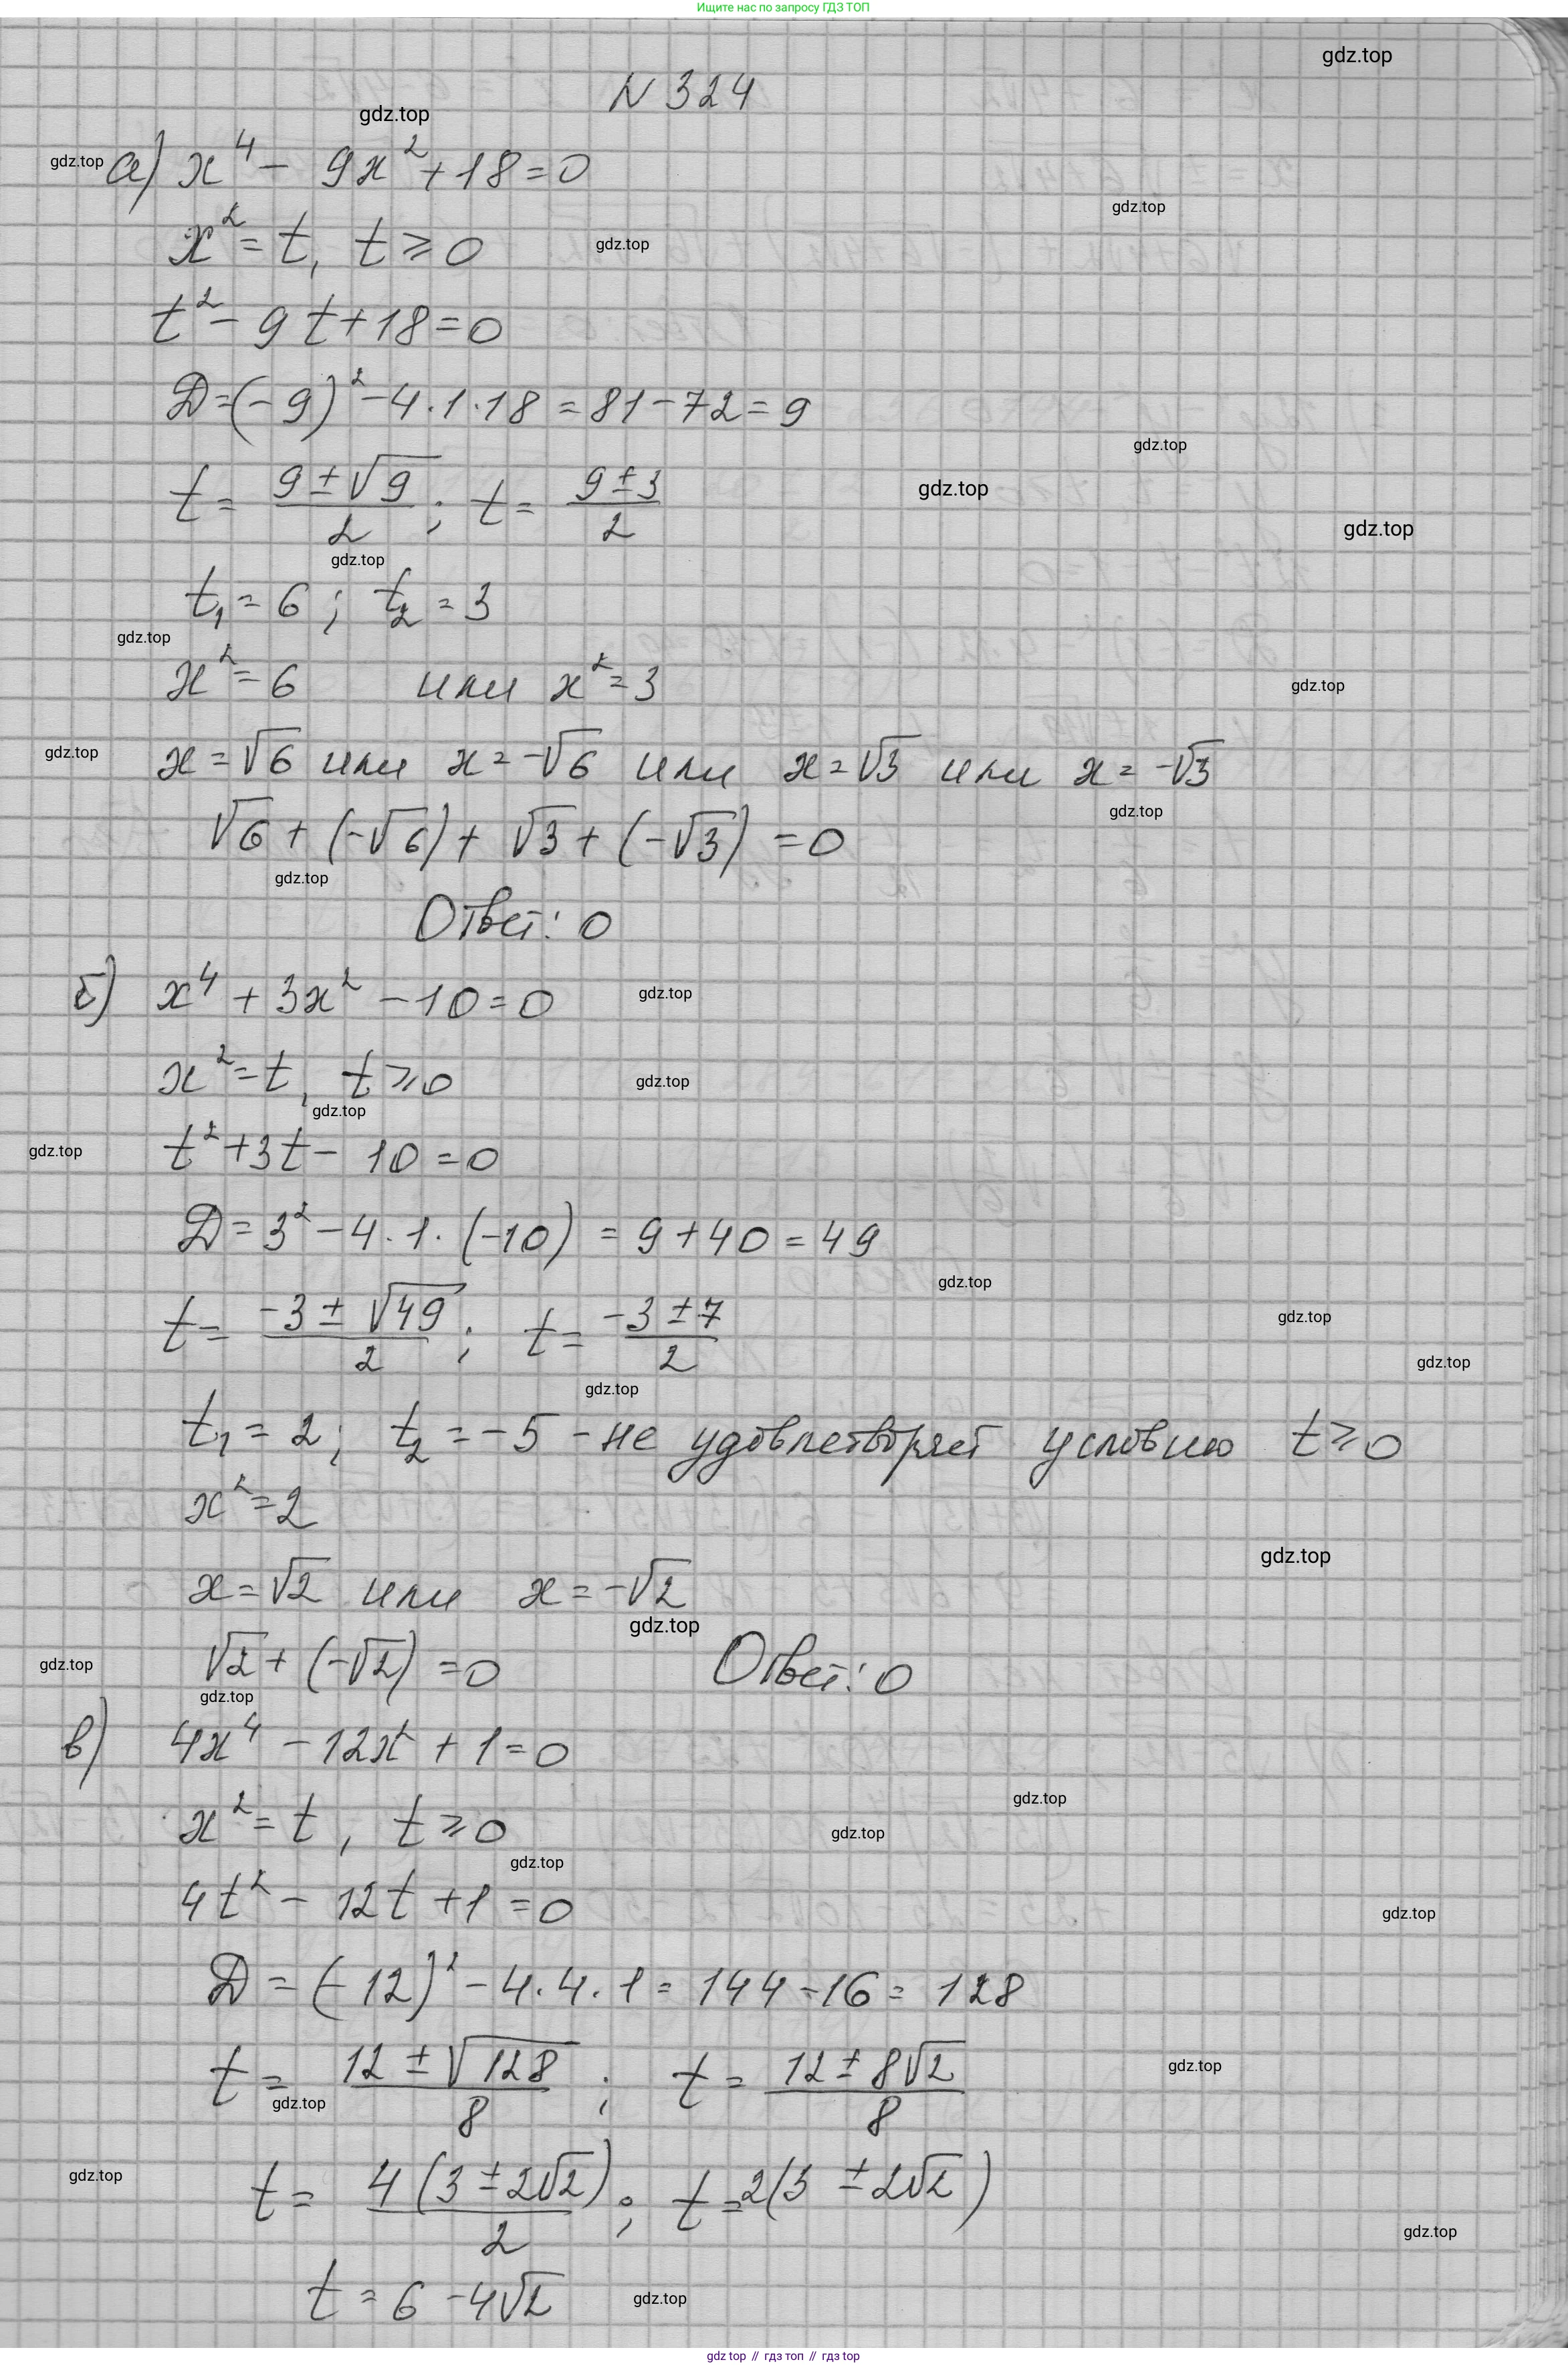 Ищите нас по запросу ГДЗ ТОП
gdz.top
N 324
gdz.top
gdz.top
а) x⁴ - 9x² + 18 = 0
gdz.top
x² = t, t ⩾ 0
gdz.top
t² - 9t + 18 = 0
D = (-9)² - 4·1·18 = 81 - 72 = 9
gdz.top
t = (9 ± √9)/2 ; t = (9 ± 3)/2
gdz.top
gdz.top
gdz.top
t₁ = 6 ; t₂ = 3
gdz.top
x² = 6 или x² = 3
gdz.top
gdz.top
x = √6 или x = -√6 или x = √3 или x = -√3
gdz.top
√6 + (-√6) + √3 + (-√3) = 0
gdz.top
Ответ: 0
б) x⁴ + 3x² - 10 = 0
gdz.top
x² = t, t ⩾ 0
gdz.top
gdz.top
gdz.top
t² + 3t - 10 = 0
D = 3² - 4·1·(-10) = 9 + 40 = 49
gdz.top
t = (-3 ± √49)/2 ; t = (-3 ± 7)/2
gdz.top
gdz.top
gdz.top
t₁ = 2; t₂ = -5 - не удовлетворяет условию t ⩾ 0
x² = 2
gdz.top
x = √2 или x = -√2
gdz.top
gdz.top
√2 + (-√2) = 0 Ответ: 0
gdz.top
в) 4x⁴ - 12x² + 1 = 0
gdz.top
x² = t, t ⩾ 0
gdz.top
gdz.top
4t² - 12t + 1 = 0
gdz.top
D = (-12)² - 4·4·1 = 144 - 16 = 128
t = (12 ± √128)/8 ; t = (12 ± 8√2)/8
gdz.top
gdz.top
gdz.top
t = 4(3 ± 2√2)/2 ; t = 2(3 ± 2√2)
gdz.top
t = 6 - 4√2
gdz.top
gdz top // гдз топ // гдз top